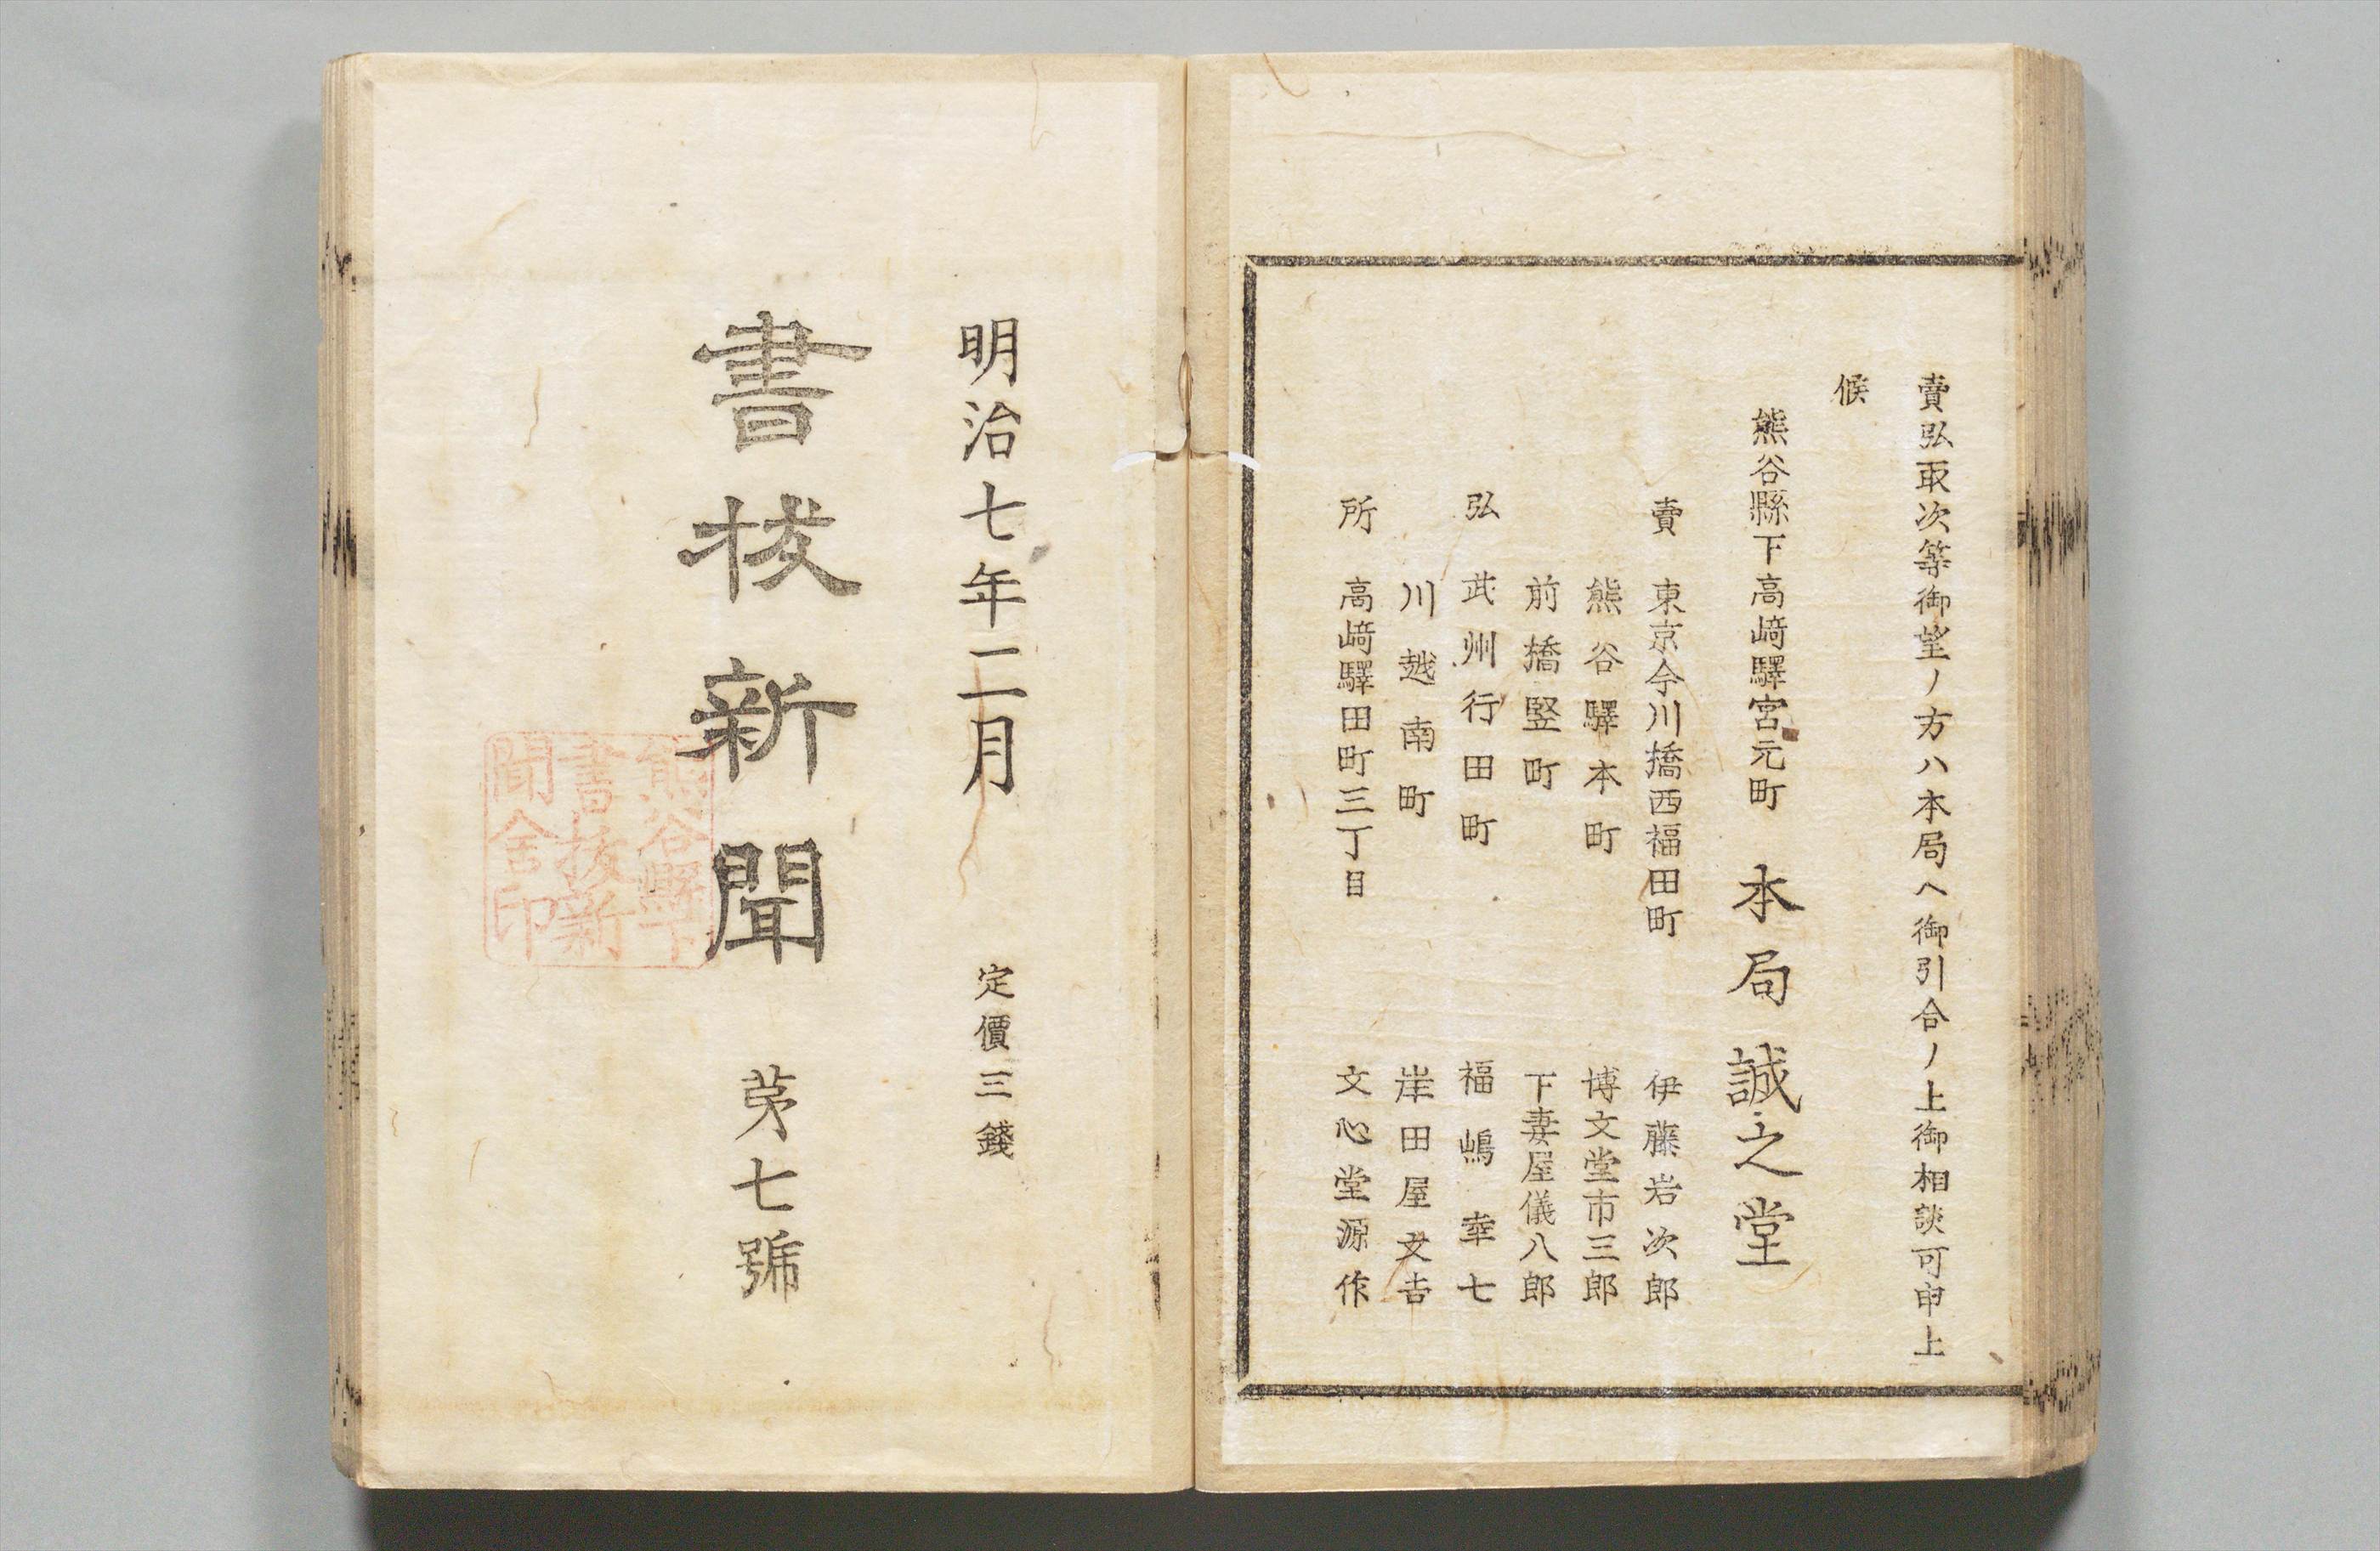 賣弘取次等御望ノ方ハ本局ヘ御引合ノ上御相談可申上
候
熊谷縣下高﨑驛宮元町 本局 誠之堂
賣 東京今川橋西福田町 伊藤岩次郎
熊谷驛本町 博文堂市三郎
前橋竪町 下妻屋儀八郎
弘 武州行田町 福嶋幸七
川越南町 岸田屋文吉
所 高﨑驛田町三丁目 文心堂源作
明治七年二月 定價三錢
書抜新聞 苐七號
熊谷驛下
書抜新
聞舎印